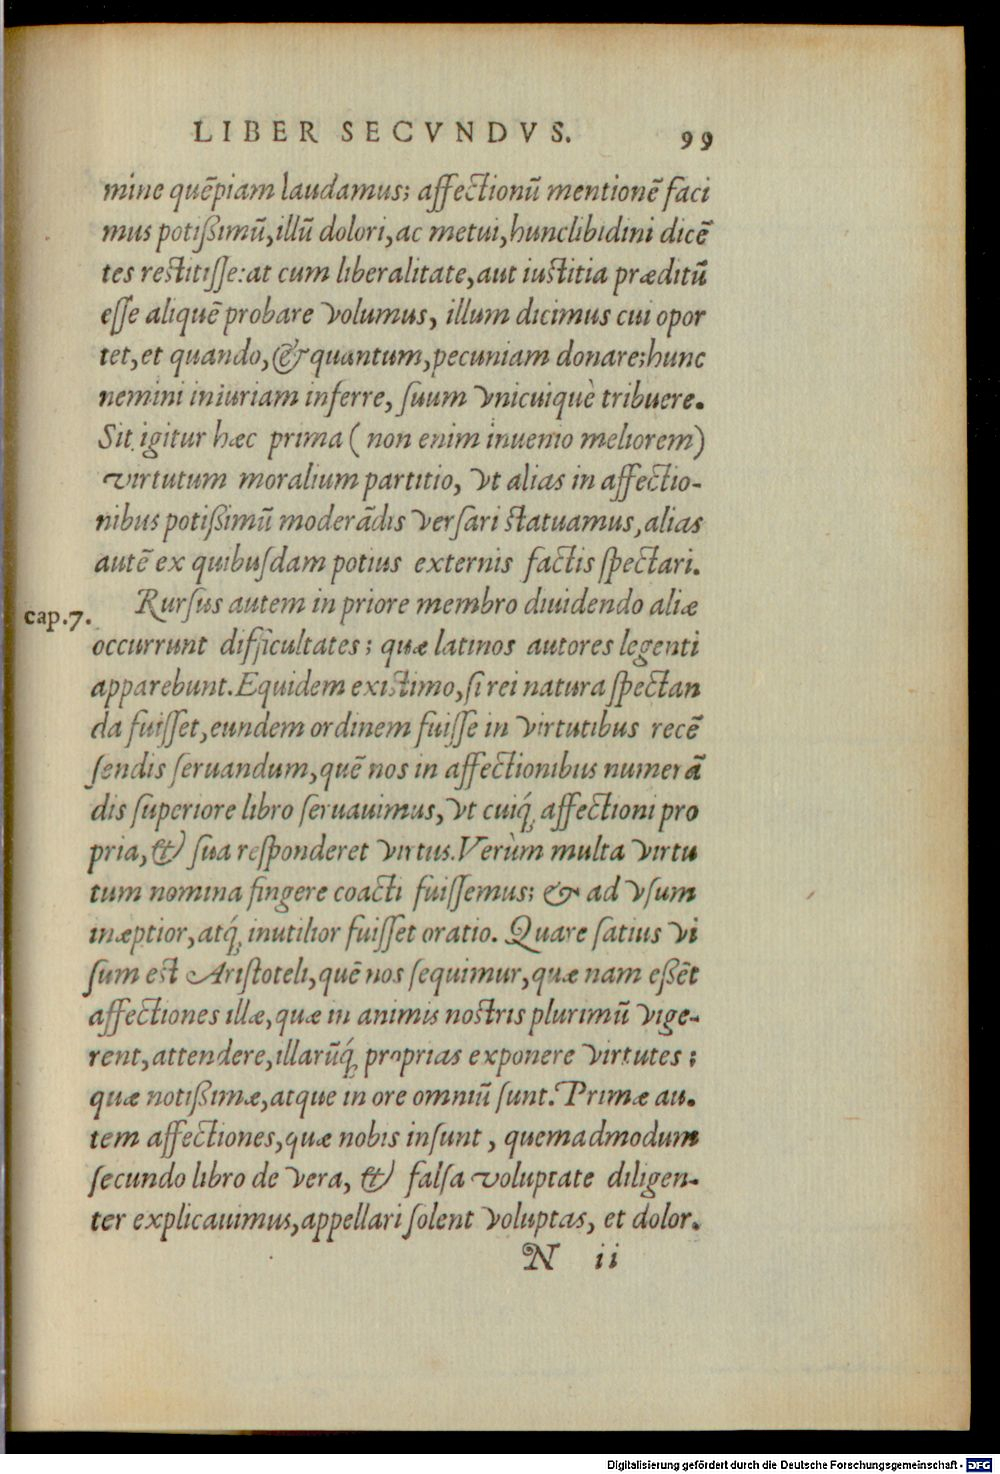 LIBER SECVNDVS. 99
mine quēpiam laudamus; affectionū mentionē faci
mus potißimū, illū dolori, ac metui, hunc libidini dicē
tes restitisse: at cum liberalitate, aut iustitia præditū
esse aliquē probare volumus, illum dicimus cui opor
tet, et quando, & quantum, pecuniam donare; hunc
nemini iniuriam inferre, suum vnicuiquè tribuere.
Sit igitur hæc prima (non enim inuenio meliorem)
virtutum moralium partitio, vt alias in affectio-
nibus potißimū moderādis versari statuamus, alias
autē ex quibusdam potius externis factis spectari.
cap.7. Rursus autem in priore membro diuidendo aliæ
occurrunt difficultates; quæ latinos autores legenti
apparebunt. Equidem existimo, si rei natura spectan
da fuisset, eundem ordinem fuisse in virtutibus recē
sendis seruandum, quē nos in affectionibus numerā
dis superiore libro seruauimus, vt cuiq́; affectioni pro
pria, & sua responderet virtus. Verùm multa virtu
tum nomina fingere coacti fuissemus; & ad vsum
inæptior, atq́; inutilior fuisset oratio. Quare satius vi
sum est Aristoteli, quē nos sequimur, quæ nam eßēt
affectiones illæ, quæ in animis nostris plurimū vige-
rent, attendere, illarūq́; proprias exponere virtutes;
quæ notißimæ, atque in ore omniū sunt. Primæ au-
tem affectiones, quæ nobis insunt, quemadmodum
secundo libro de vera, & falsa voluptate diligen-
ter explicauimus, appellari solent voluptas, et dolor.
N ii
Digitalisierung gefördert durch die Deutsche Forschungsgemeinschaft - DFG